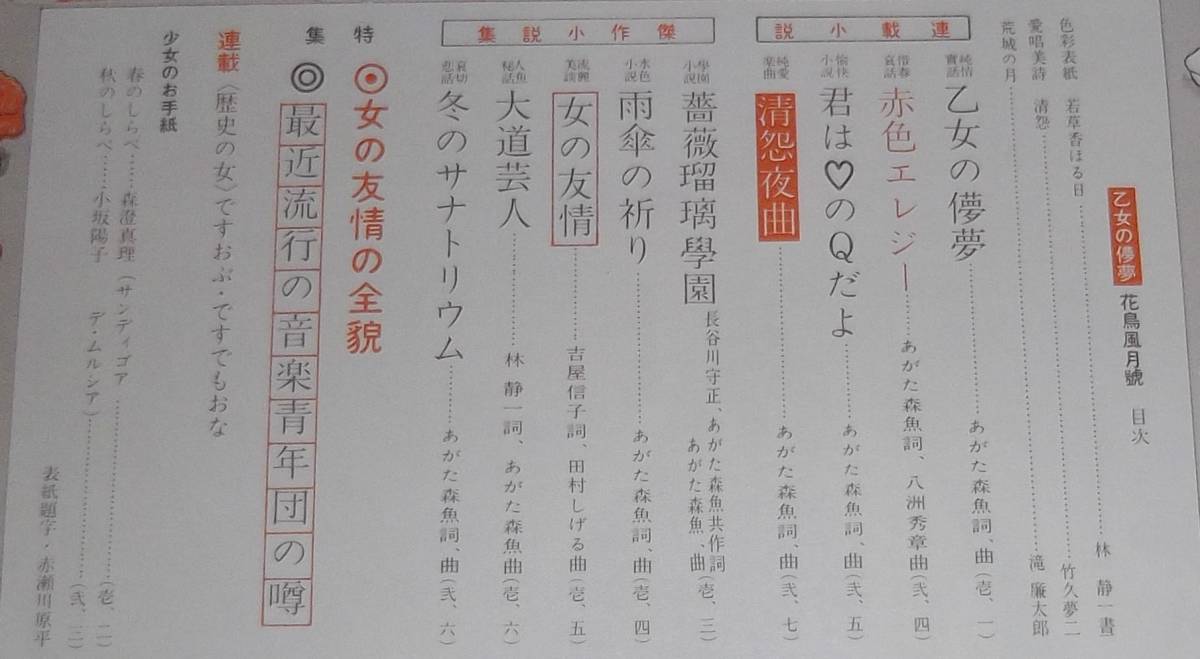 乙女の儚夢 花鳥風月號 目次
色彩表紙 若草香ほる日……林 静一畫
愛唱美詩 清怨……竹久夢二
荒城の月……滝 廉太郎
連載小説
純情實話 乙女の儚夢……あがた森魚詞、曲(壱、一)
惜春哀話 赤色エレジー……あがた森魚詞、八洲秀章曲(弐、四)
愉快小説 君は♡のQだよ……あがた森魚詞、曲(弐、五)
純愛楽曲 清怨夜曲……あがた森魚詞、曲(弐、七)
傑作小説集
學園小説 薔薇瑠璃學園 長谷川守正、あがた森魚共作詞 あがた森魚、曲(壱、三)
水色小説 雨傘の祈り……あがた森魚詞、曲(壱、四)
美談 女の友情……吉屋信子詞、田村しげる曲(壱、五)
人魚秘話 大道芸人……林 静一詞、あがた森魚曲(壱、六)
哀切悲話 冬のサナトリウム……あがた森魚詞、曲(弐、六)
特集
◉女の友情の全貌
◎最近流行の音楽青年団の噂
連載〈歴史の女〉ですおぶ・ですでもおな
少女のお手紙
春のしらべ……森澄真理(サンディゴア……(壱、二)
秋のしらべ……小坂陽子 デ・ムルシア)……(弐、三)
表紙題字・赤瀬川原平